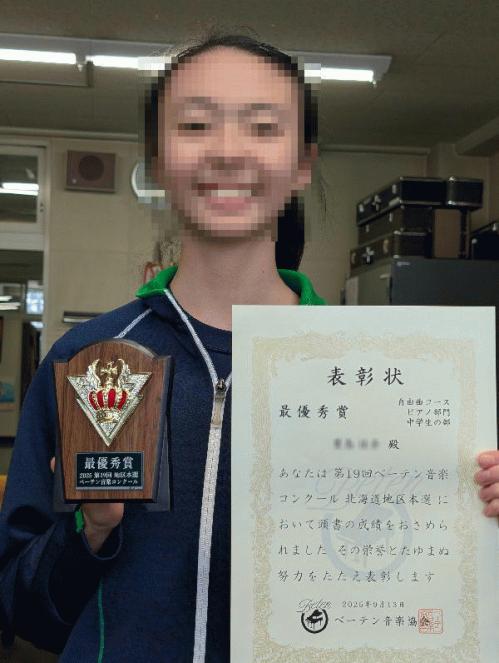 最優秀賞
2025 第19回 地区本選
ベーテン音楽コンクール
表彰状
最優秀賞
自由曲コース
ピアノ部門
中学生の部
殿
あなたは 第19回ベーテン音楽
コンクール 北海道地区本選 に
おいて頭書の成績をおさめら
れました その栄誉とたゆまぬ
努力をたたえ表彰します
2025年9月13日
ベーテン音楽協会